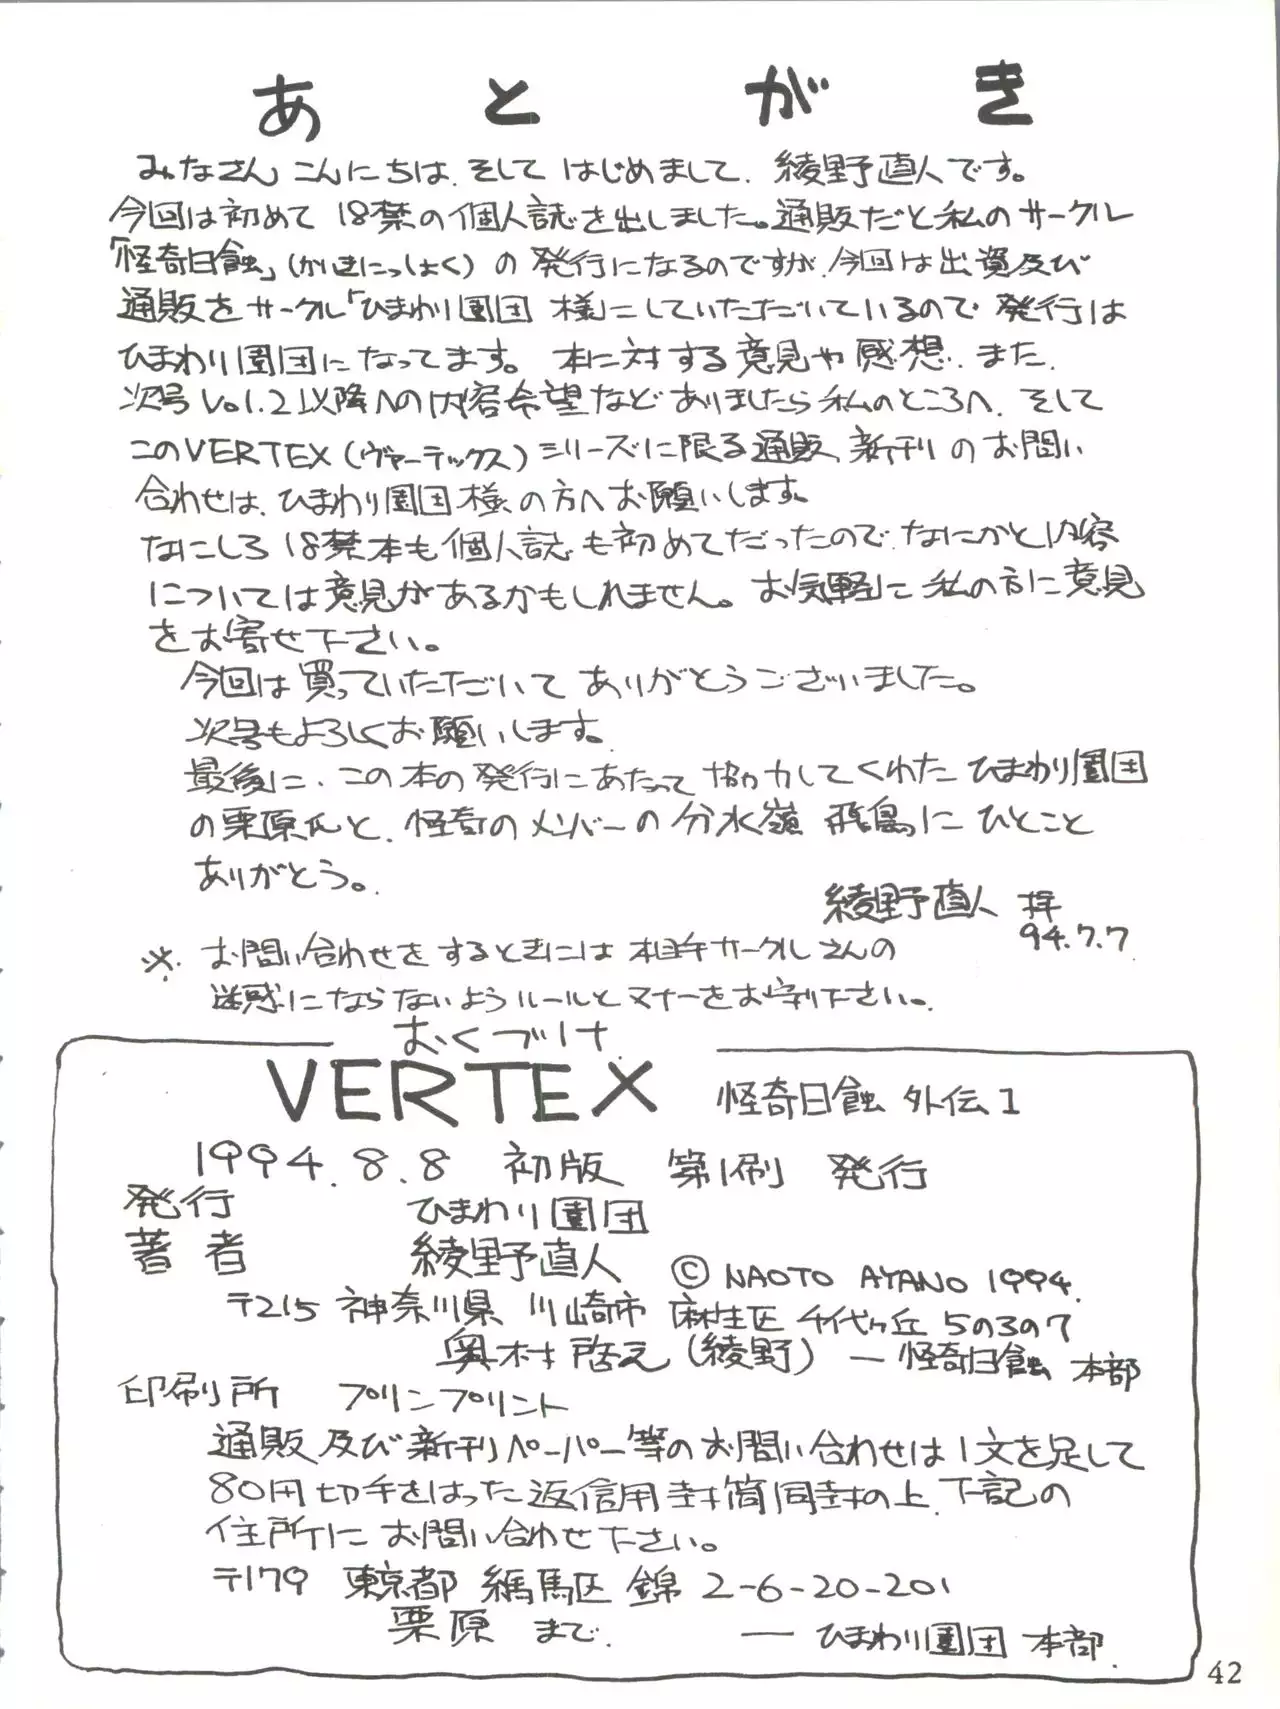 あとがき
みなさん こんにちは. そして はじめまして. 綾野直人です。
今回は初めて 18禁の個人誌を出しました。通販だと私のサークル
「怪奇日蝕」(かいきにっしょく)の発行になるのですが、今回は出資及び
通販をサークル「ひまわり園団 様にしていただいているので 発行は
ひまわり園団になってます。 本に対する意見や感想. また.
次号Vol.2以降への内容希望などありましたら私のところへ. そして
このVERTEX(ヴァーテックス)シリーズに限る通販、新刊のお問い
合わせは、ひまわり園団様、の方へお願いします。
なにしろ 18禁本も個人誌も初めてだったので、なにかと内容
については意見があるかもしれません。お気軽に私の方に意見
をお寄せ下さい。
今回は買っていただいてありがとうございました。
次号もよろしくお願いします。
最後に、この本の発行にあたって協力してくれたひまわり園団
の栗原氏と、怪奇のメンバーの分水嶺 飛鳥にひとこと
ありがとう。
綾野直人 拝
94.7.7
※. お問い合わせをするときには本自等サークルさんの
迷惑にならないようルールとマナーをお守り下さい。
おくづけ
VERTEX 怪奇日蝕 外伝1
1994.8.8 初版 第1刷 発行
発行 ひまわり園団
著者 綾野直人 © NAOTO AYANO 1994.
〒215 神奈川県 川崎市 麻生区 千代ヶ丘 5の3の7
奥村啓之(綾野) ― 怪奇日蝕 本部
印刷所 プリンプリント
通販及び新刊ペーパー等のお問い合わせは1文を足して
80円切手をはった返信用封筒同封の上、下記の
住所に お問い合わせ下さい。
〒179 東京都 練馬区 錦 2-6-20-201
栗原 まで. ― ひまわり園団 本部.
42